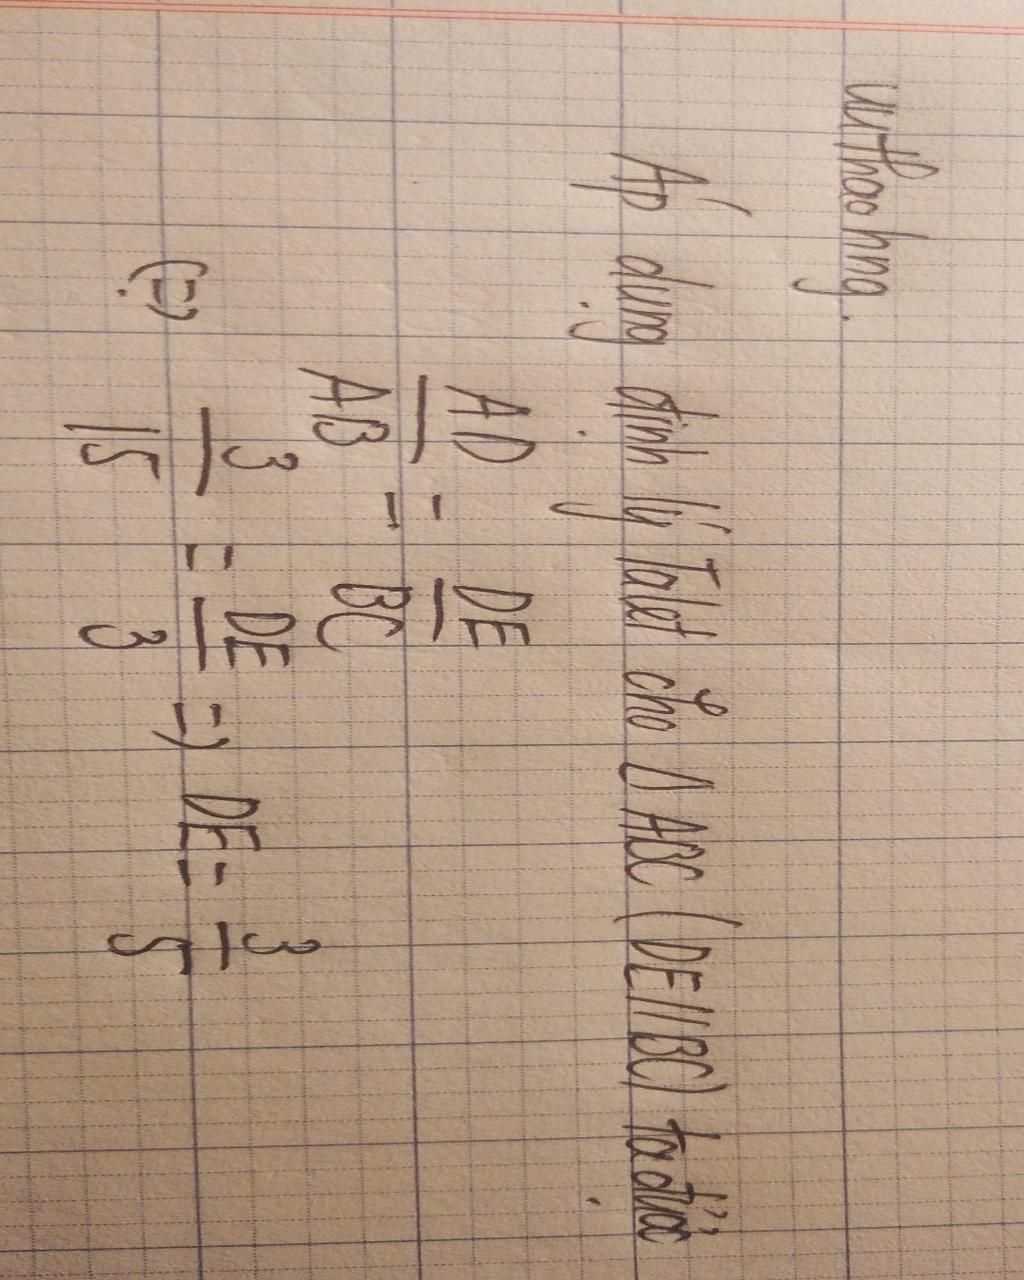 uurthaohng.
Áp dụng định lý Talet cho Δ ABC (DE//BC) ta được
AD/AB = DE/BC
(=) 3/15 = DE/3 =) DE = 3/5